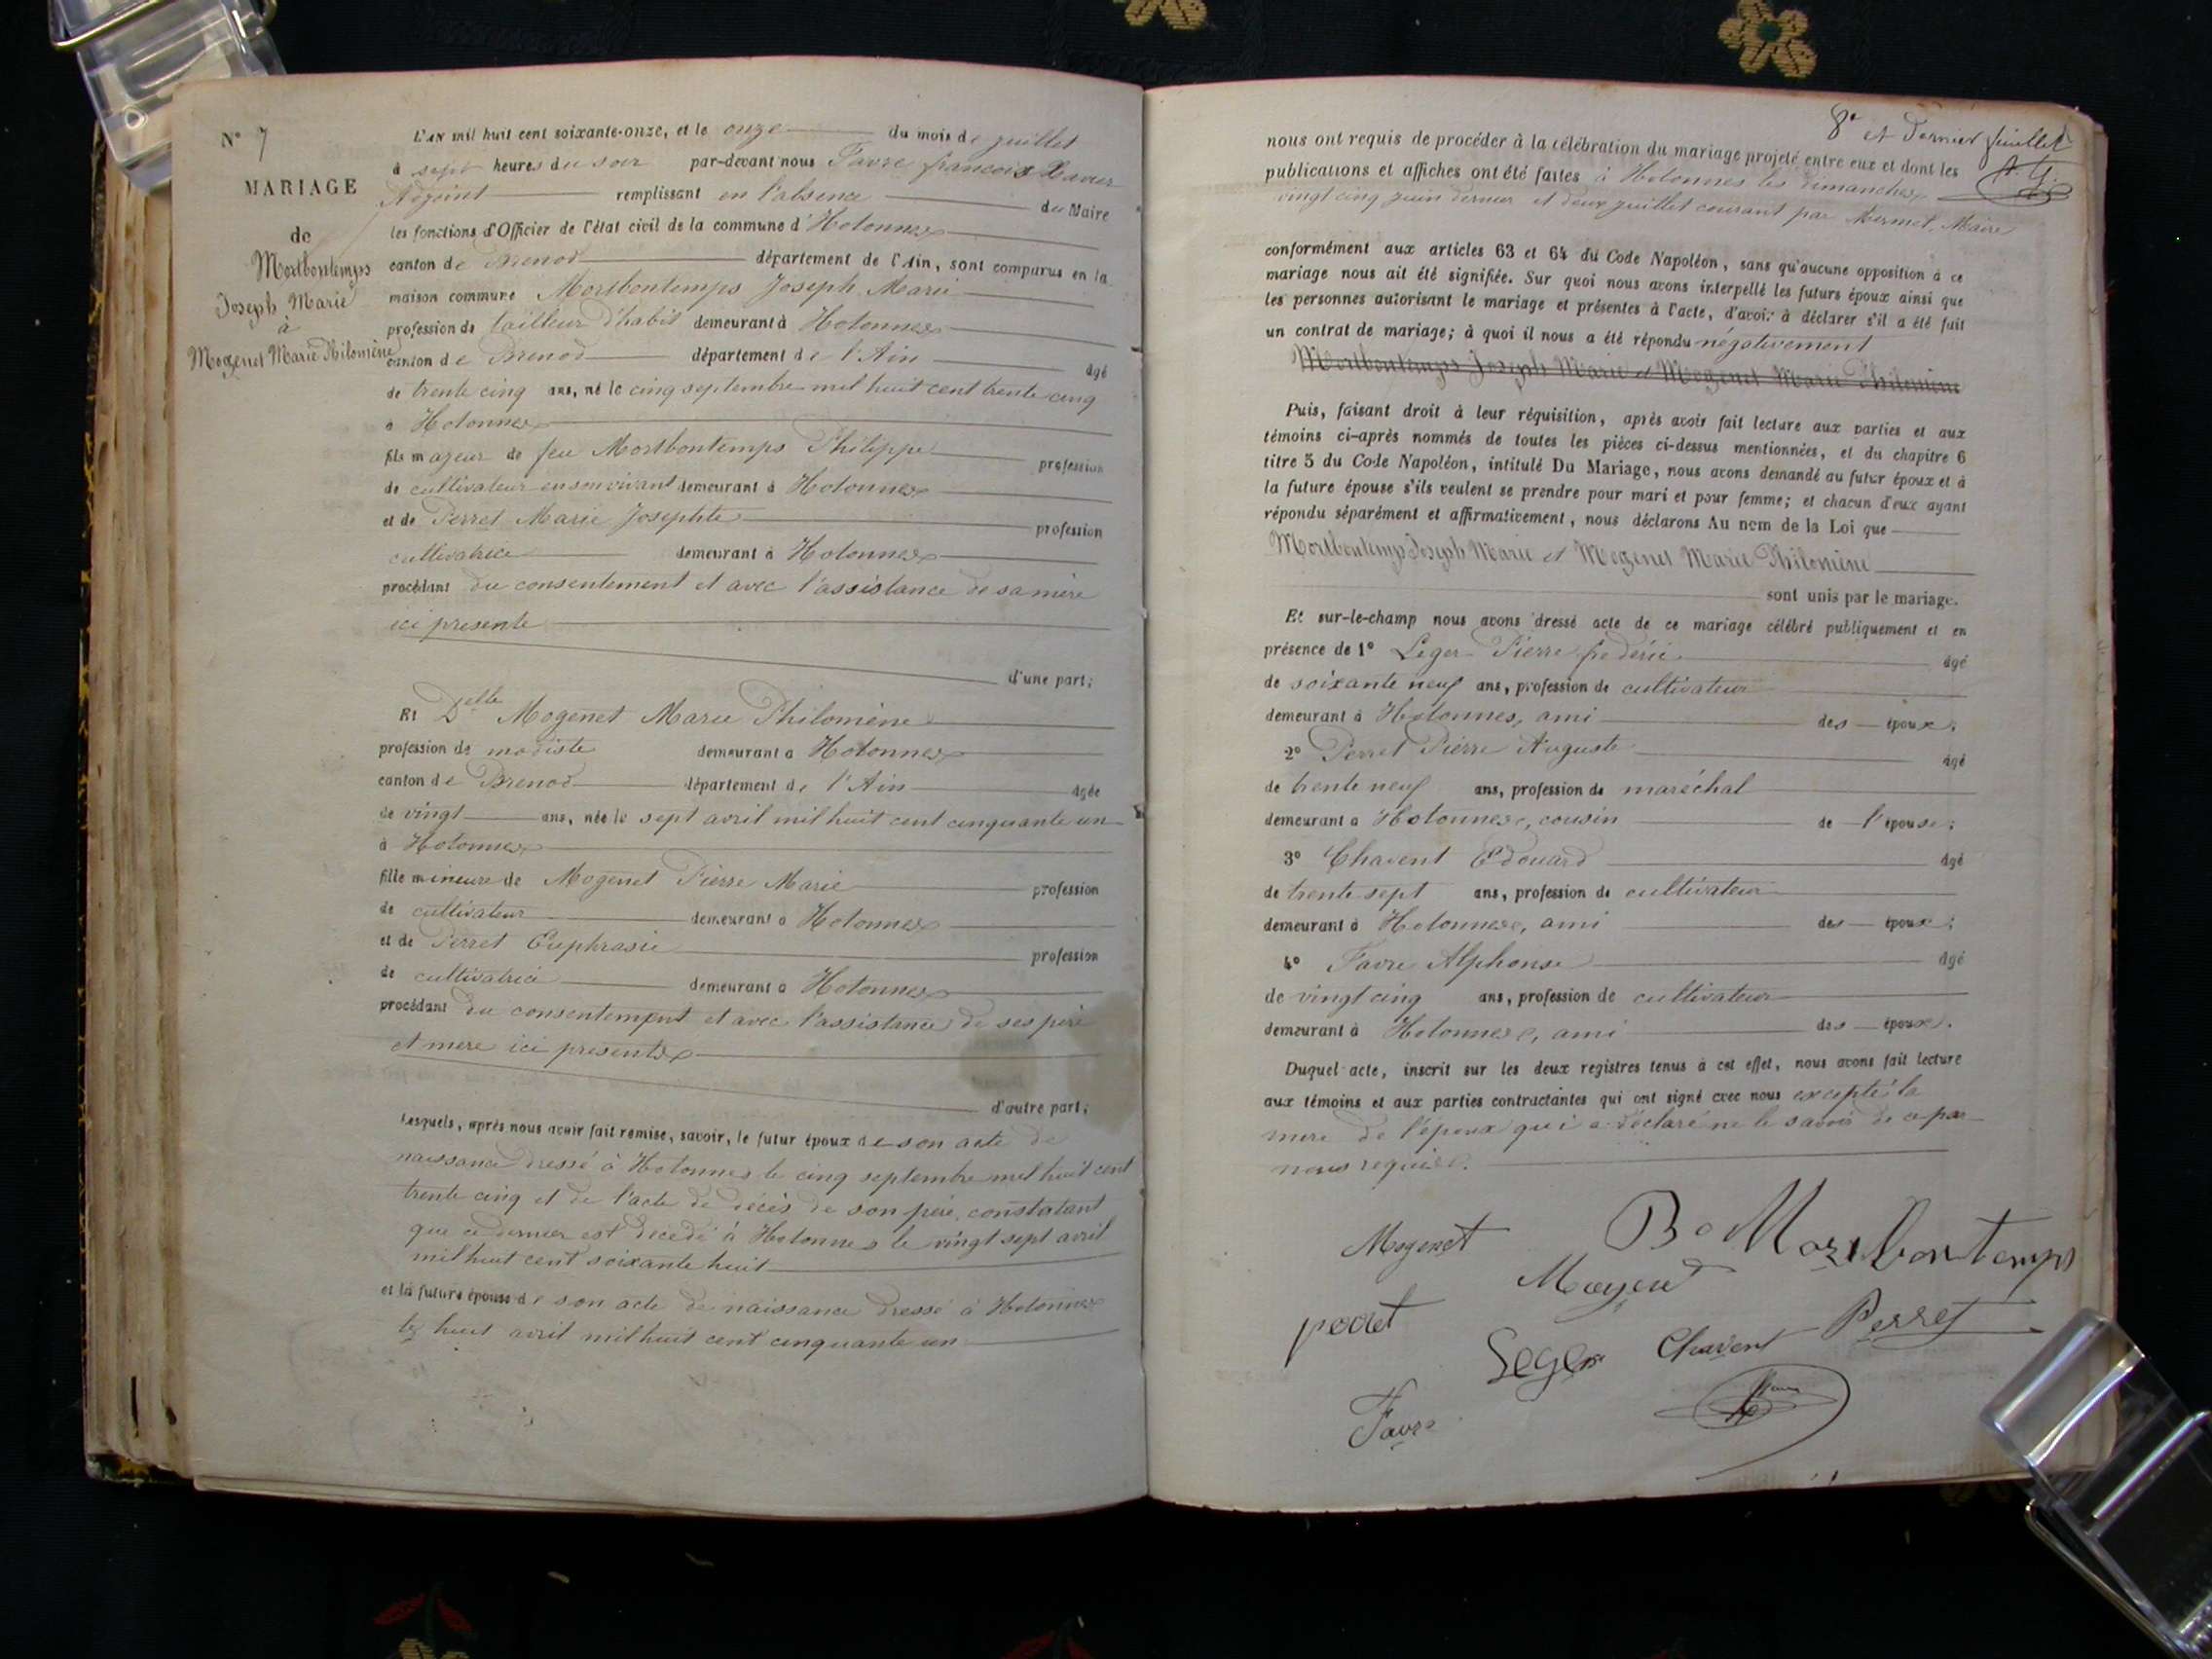 N° 7
MARIAGE
de
Mortbontemps
Joseph Marie
à
Mogenet Marie Philomène
L'AN mil huit cent soixante-onze, et le onze du mois de juillet
à sept heures du soir par-devant nous Favre françois Xavier
Adjoint remplissant en l'absence du Maire
les fonctions d'Officier de l'état civil de la commune d'Hotonnes
canton de Brenod département de l'Ain, sont comparus en la
maison commune Mortbontemps Joseph Marie
profession de tailleur d'habit demeurant à Hotonnes
canton de Brenod département de l'Ain âgé
de trente cinq ans, né le cinq septembre mil huit cent trente cinq
à Hotonnes
fils majeur de feu Mortbontemps Philippe profession
de cultivateur en son vivant demeurant à Hotonnes
et de Perret Marie Josephte profession
cultivatrice demeurant à Hotonnes
procédant du consentement et avec l'assistance de sa mère
ici presente
d'une part;
Et Delle Mogenet Marie Philomène
profession de modiste demeurant à Hotonnes
canton de Brenod département de l'Ain âgée
de vingt ans, née le sept avril mil huit cent cinquante un
à Hotonnes
fille mineure de Mogenet Pierre Marie profession
de cultivateur demeurant à Hotonnes
et de Perret Euphrasie profession
de cultivatrice demeurant à Hotonnes
procédant du consentement et avec l'assistance de ses père
et mere ici presents
d'autre part;
Lesquels, après nous avoir fait remise, savoir, le futur époux de son acte de
naissance dressé à Hotonnes le cinq septembre mil huit cent
trente cinq et de l'acte de décès de son père, constatant
que ce dernier est décédé à Hotonnes le vingt sept avril
mil huit cent soixante huit
et la future épouse de son acte de naissance dressé à Hotonnes
le huit avril mil huit cent cinquante un
8e et dernier feuillet
nous ont requis de procéder à la célébration du mariage projeté entre eux et dont les
publications et affiches ont été faites à Hotonnes les dimanches
vingt cinq juin dernier et deux juillet courant par Mermet, Maire
conformément aux articles 63 et 64 du Code Napoléon, sans qu'aucune opposition à ce
mariage nous ait été signifiée. Sur quoi nous avons interpellé les futurs époux ainsi que
les personnes autorisant le mariage et présentes à l'acte, d'avoir à déclarer s'il a été fait
un contrat de mariage; à quoi il nous a été répondu négativement
Mortbontemps Joseph Marie et Mogenet Marie Philomène
Puis, faisant droit à leur réquisition, après avoir fait lecture aux parties et aux
témoins ci-après nommés de toutes les pièces ci-dessus mentionnées, et du chapitre 6
titre 5 du Code Napoléon, intitulé Du Mariage, nous avons demandé au futur époux et à
la future épouse s'ils veulent se prendre pour mari et pour femme; et chacun d'eux ayant
répondu séparément et affirmativement, nous déclarons Au nom de la Loi que
Mortbontemps Joseph Marie et Mogenet Marie Philomène
sont unis par le mariage.
Et sur-le-champ nous avons dressé acte de ce mariage célébré publiquement et en
présence de 1° Leger Pierre fréderic âgé
de soixante neuf ans, profession de cultivateur
demeurant à Hotonnes, ami des époux;
2° Perret Pierre Auguste âgé
de trente neuf ans, profession de maréchal
demeurant à Hotonnes, cousin de l'épouse;
3° Chavent Edouard âgé
de trente sept ans, profession de cultivateur
demeurant à Hotonnes, ami des époux;
4° Favre Alphonse âgé
de vingt cinq ans, profession de cultivateur
demeurant à Hotonnes, ami des époux.
Duquel acte, inscrit sur les deux registres tenus à cet effet, nous avons fait lecture
aux témoins et aux parties contractantes qui ont signé avec nous excepté la
mere de l'époux qui a déclaré ne le savoir de ce par
nous requise.
Mogenet Mortbontemps
Perret
Leger Chavent
Favre